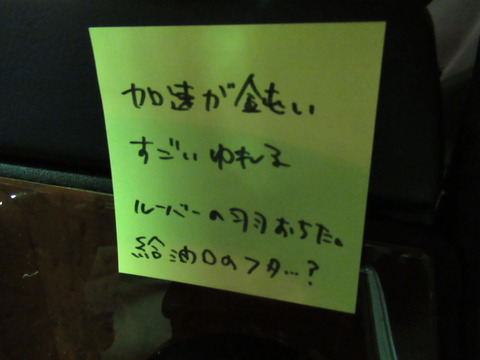 加速が鈍い
すごいゆれる
ルーバーの羽おちた。
給油口のフタ…?